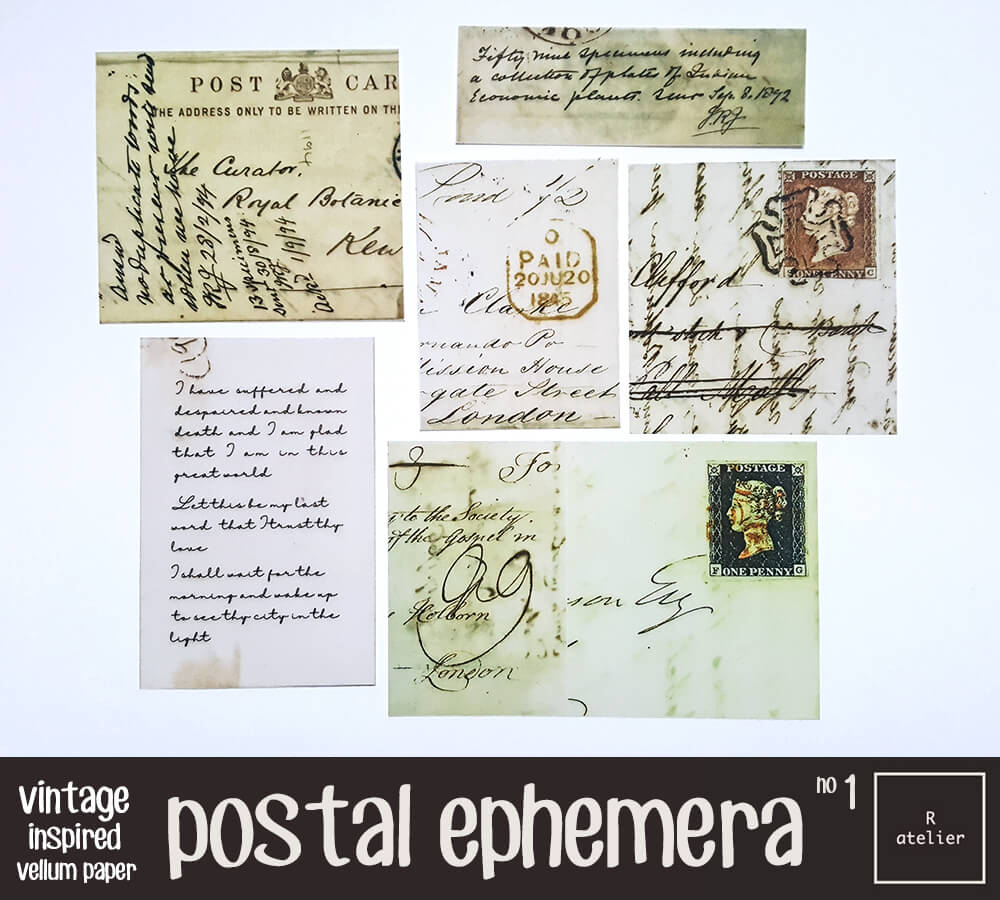 POST CAR
THE ADDRESS ONLY TO BE WRITTEN ON TH
The Curator,
Royal Botanic
Kew
no duplicate words
28/2/94
13 specimens
30/8/94
1/9/94
Fifty nine specimens including
a collection of plates of Indian
Economic plants. Sep. 8. 1892
Paid 1/2
PAID
20JU20
1845
Clarke
rnando Po
ission House
gate Street
London
POSTAGE
S ONE PENNY C
Clifford
Bank
Pall Mall
I have suffered and
despaired and known
death and I am glad
that I am in this
great world
Let this be my last
word that I trust thy
love
I shall wait for the
morning and wake up
to see thy city in the
light
For
y to the Society,
of the Gospel in
Holborn
London
son Esq
POSTAGE
F ONE PENNY G
vintage
inspired
vellum paper
postal ephemera no 1
R
atelier